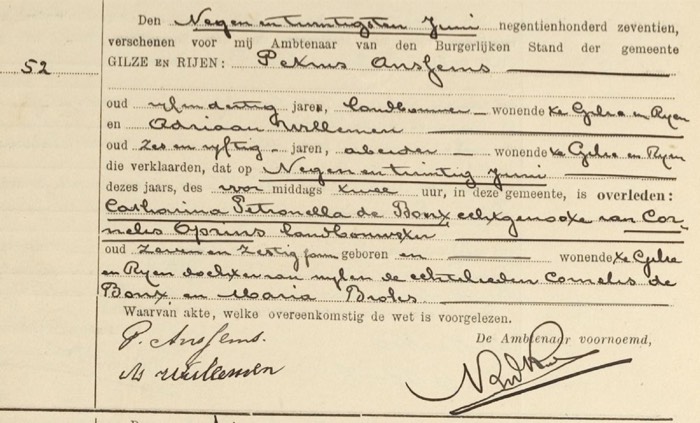 Den Negen en twintigsten Juni negentienhonderd zeventien,
verschenen voor mij Ambtenaar van den Burgerlijken Stand der gemeente
52
GILZE EN RIJEN: Petrus Ansfems
oud vijfendertig jaren, landbouwer wonende te Gilze en Ryen
en Adriaan Willemen
oud zes en vyftig jaren, arbeider wonende te Gilze en Ryen
die verklaarden, dat op Negen en twintig Juni
dezes jaars, des voor middags twee uur, in deze gemeente, is overleden:
Catharina Petronella de Bont echtgenoote van Cor-
nelis landbouwster
oud zeven en zestig jaren geboren en wonende te Gilze
en Ryen dochter van wylen de echtelieden Cornelis de
Bont en Maria Broks
Waarvan akte, welke overeenkomstig de wet is voorgelezen.
De Ambtenaar voornoemd,
P. Ansfems.
A Willemen